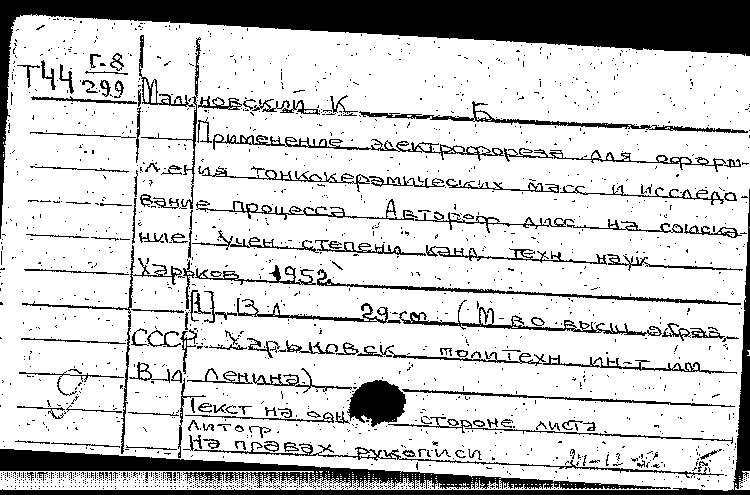 Т44 Г-8/299
Малиновский, К Б
Применение электрофореза для оформ-
ления тонкокерамических масс и исследо-
вание процесса. Автореф. дисс. на соиска-
ние учен степени канд. техн. наук
Харьков, 1952.
[1], 13 л 29 см (М-во высш. образ.
СССР. Харьковск политехн ин-т им.
В И Ленина)
Текст на одн стороне листа.
литогр.
На правах рукописи.